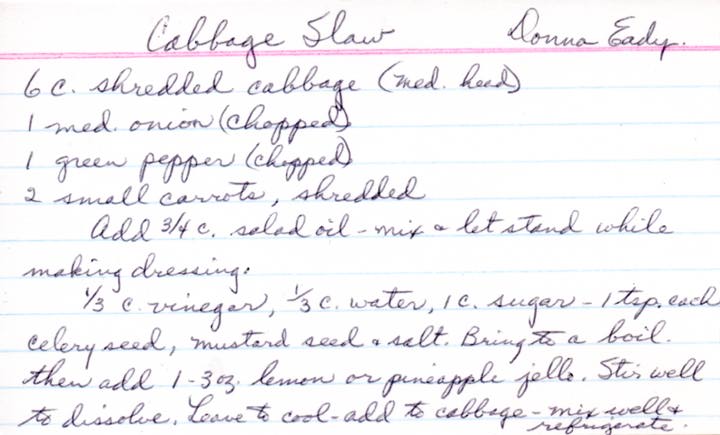 Cabbage Slaw Donna Eady.
6 c. shredded cabbage (med. head)
1 med. onion (chopped)
1 green pepper (chopped)
2 small carrots, shredded
Add 3/4 c. salad oil - mix & let stand while
making dressing:
1/3 c. vinegar, 1/3 c. water, 1 c. sugar - 1 tsp. each
celery seed, mustard seed & salt. Bring to a boil.
then add 1-3 oz. lemon or pineapple jello. Stir well
to dissolve. Leave to cool - add to cabbage - mix well &
refrigerate.